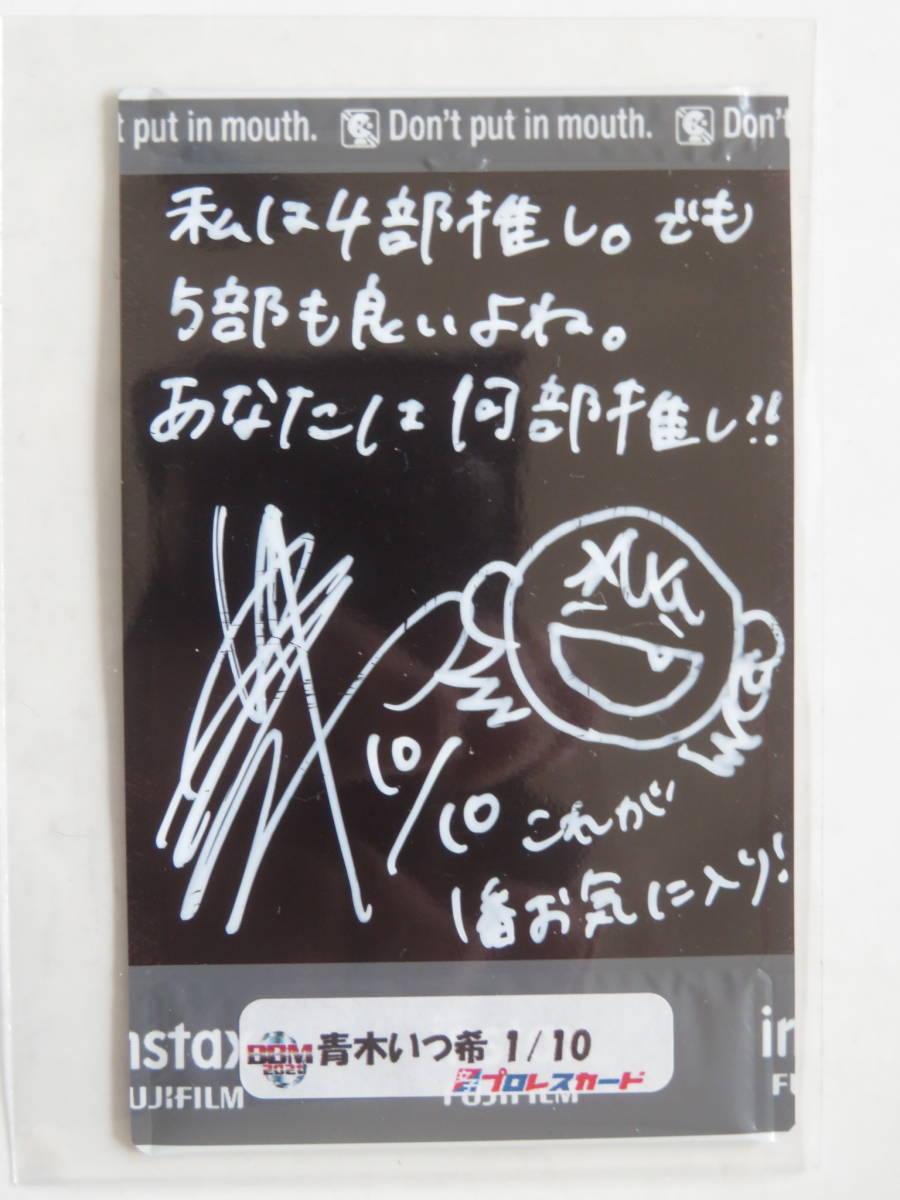 t put in mouth. Don't put in mouth. Don't
私は4部推し。でも
5部も良いよね。
あなたは何部推し⁈!
10/10
これが
1番お気に入り!
nstax
in
UJIFILM
FUJIFILM
FU
BBM
2020
青木いつ希 1/10
プロレスカード